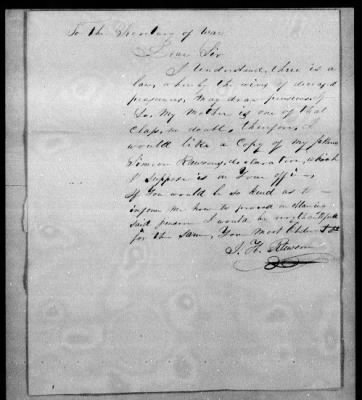 To the Secretary of War
Dear Sir
I understand, there is a
law, whereby the wives of deceased
pensioners, may draw pensions if
So, My Mother is one of that
Class, no doubt, therefore, I
would like a Copy of my fathers
Simeon declaration, which
I suppose is in Your office,
If You would be so kind as to
inform me how to proceed in obtaining
said pension I would be very thankful
for the same, Your Most Obedient